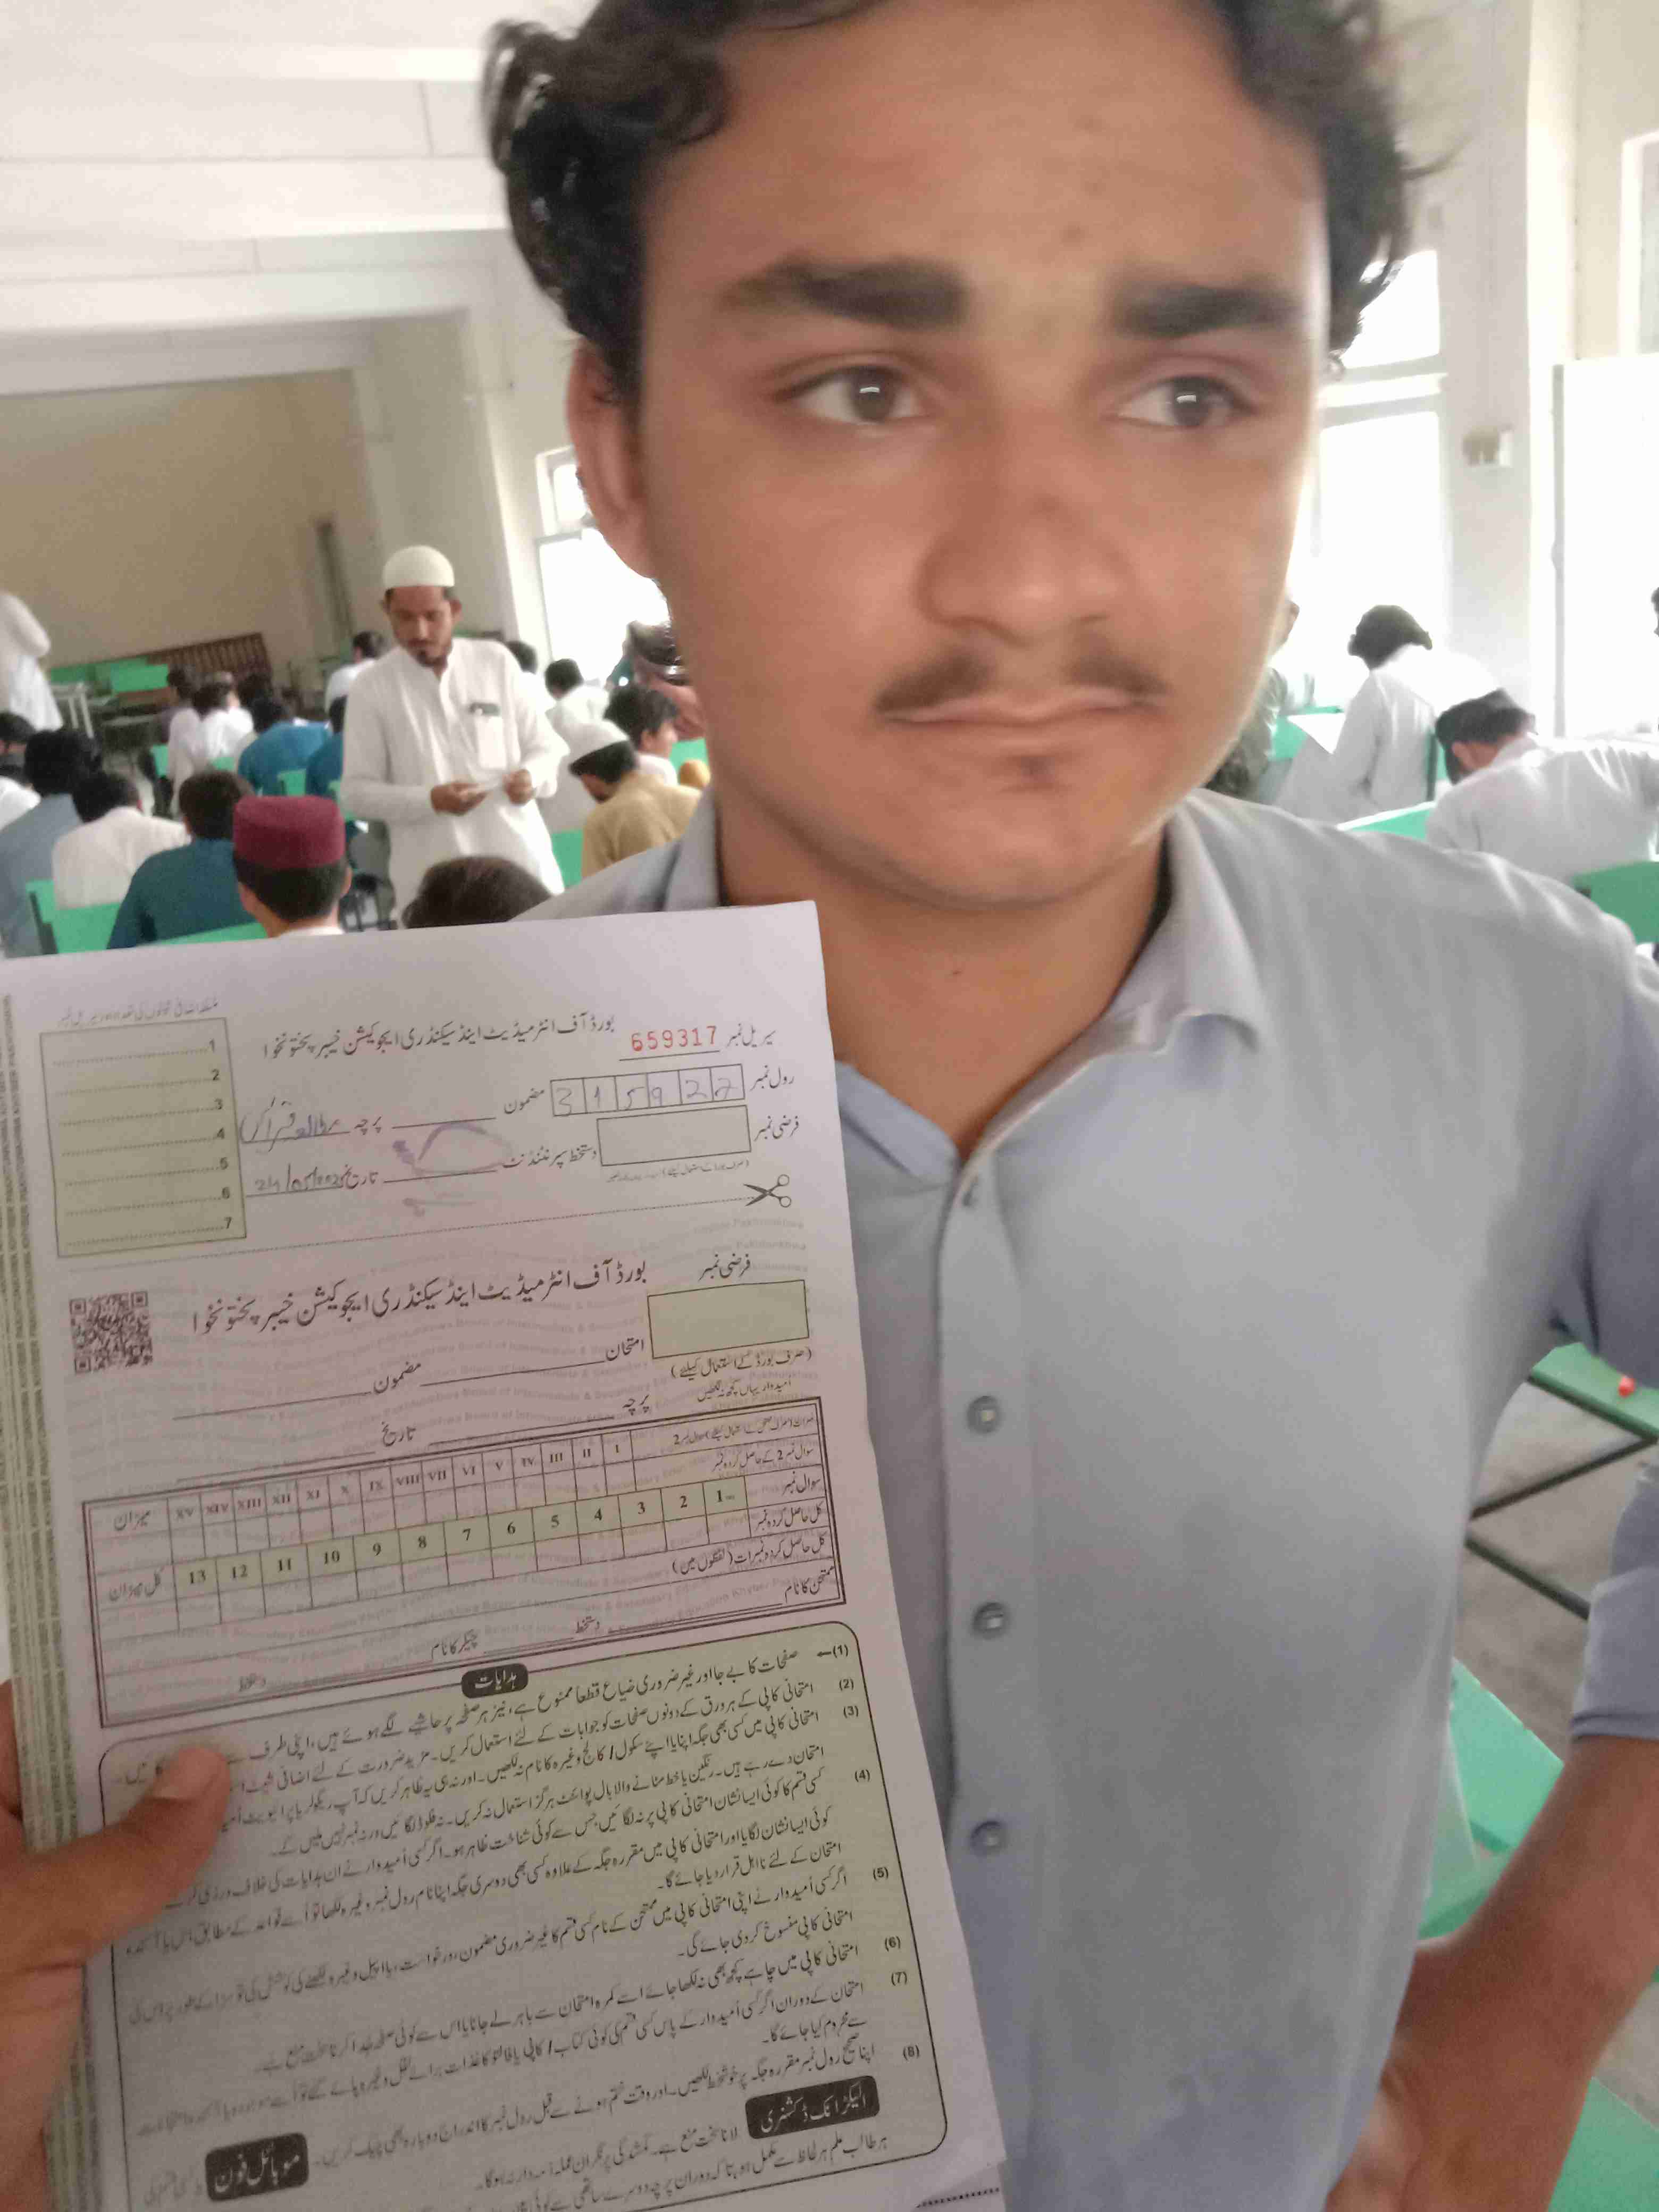 سیریل نمبر 659317
بورڈ آف انٹرمیڈیٹ اینڈ سیکنڈری ایجوکیشن خیبر پختونخوا
رول نمبر 3 1 5 9 2 2
مضمون
پرچہ مطالعہ قرآن
فرضی نمبر
دستخط سپرنٹنڈنٹ
تاریخ
1
2
3
4
5
6
7
فرضی نمبر
بورڈ آف انٹرمیڈیٹ اینڈ سیکنڈری ایجوکیشن خیبر پختونخوا
(صرف بورڈ کے استعمال کیلئے)
امیدوار یہاں کچھ نہ لکھیں
امتحان
مضمون
پرچہ
تاریخ
سوال نمبر 2 کے حاصل کردہ نمبر
I II III IV V VI VII VIII IX X XI XII XIII XIV XV میزان
سوال نمبر
1 2 3 4 5 6 7 8 9 10 11 12 13 کل میزان
کل حاصل کردہ نمبر
کل حاصل کردہ نمبرات (لفظوں میں)
ممتحن کا نام
دستخط
چیکر کا نام
دستخط
ہدایات
(1) صفحات کا بے جا اور غیر ضروری ضیاع قطعاً ممنوع ہے، نیز ہر صفحہ پر حاشیے لگے ہوئے ہیں، اپنی طرف سے
(2) امتحانی کاپی کے ہر ورق کے دونوں صفحات کو جوابات کے لئے استعمال کریں۔ مزید ضرورت کے لئے اضافی شیٹ
(3) امتحانی کاپی میں کسی بھی جگہ اپنا یا اپنے سکول/ کالج وغیرہ کا نام نہ لکھیں۔ اور نہ ہی یہ ظاہر کریں کہ آپ ریگولر یا پرائیویٹ
امتحان دے رہے ہیں۔ رنگین یا خط مٹانے والا بال پوائنٹ ہرگز استعمال نہ کریں۔ نہ فلوڈ لگائیں ورنہ نمبر نہیں ملیں گے۔
(4) کسی قسم کا کوئی ایسا نشان امتحانی کاپی پر نہ لگائیں جس سے کوئی شناخت ظاہر ہو۔ اگر کسی امیدوار نے ان ہدایات کی خلاف ورزی
کوئی ایسا نشان لگایا اور امتحانی کاپی میں مقررہ جگہ کے علاوہ کسی بھی دوسری جگہ اپنا نام رول نمبر وغیرہ لکھا تو اُسے قواعد کے مطابق
امتحان کے لئے نااہل قرار دیا جائے گا۔
(5) اگر کسی امیدوار نے اپنی امتحانی کاپی میں ممتحن کے نام کسی قسم کا غیر ضروری مضمون، درخواست، یا اپیل وغیرہ لکھنے کی کوشش کی تو سزا کے طور پر اس کی
امتحانی کاپی منسوخ کر دی جائے گی۔
(6) امتحانی کاپی میں چاہے کچھ بھی نہ لکھا جائے اسے کمرہ امتحان سے باہر لے جانا یا اس سے کوئی صفحہ جدا کرنا سخت منع ہے۔
(7) امتحان کے دوران اگر کسی امیدوار کے پاس کسی قسم کی کوئی کتاب/ کاپی یا فالتو کاغذات برائے نقل وغیرہ پائے گئے تو اُسے
سے محروم کیا جائے گا۔
(8) اپنا صحیح رول نمبر مقررہ جگہ پر خوشخط لکھیں۔ اور وقت ختم ہونے سے قبل رول نمبر کا اندراج دوبارہ بھی چیک کریں۔
موبائل فون
الیکٹرانک ڈکشنری لانا سخت منع ہے۔ گمشدگی پر نگران عملہ ذمہ دار نہ ہوگا۔
ہر طالب علم ہر لحاظ سے مکمل ہو، تاکہ دوران پرچہ دوسرے ساتھی سے کوئی